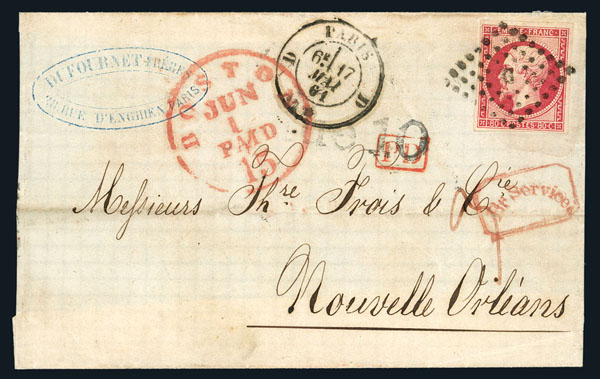 DUFOURNET-FRÈRES
RUE D'ENGHIEN, PARIS
BOSTON
JUN
1
PAID
15
PARIS
6E/17
MAI
61
D D
EMPIRE FRANC.
80 C POSTES 80 C
10
PD
Br Service
Messieurs Thre Frois & Cie
Nouvelle Orléans